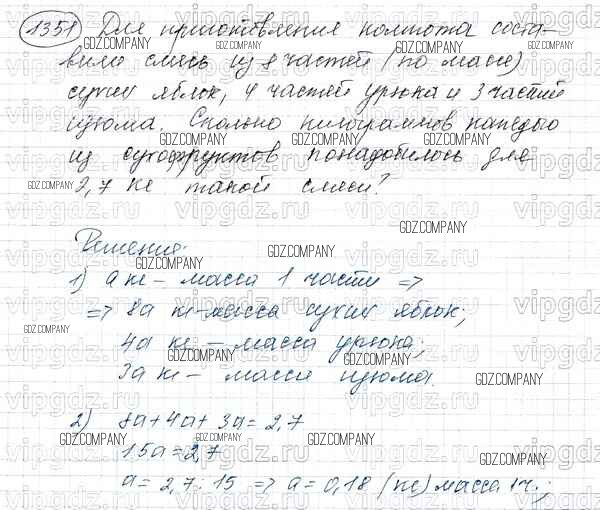 1351 Для приготовления компота соста-
вили смесь из 8 частей (по массе)
сухих яблок, 4 частей урюка и 3 частей
изюма. Сколько килограммов каждого
из сухофруктов понадобилось для
2,7 кг такой смеси?
Решение:
1) а кг – масса 1 части =>
=> 8а кг – масса сухих яблок;
4а кг – масса урюка;
3а кг – масса изюма.
2) 8а + 4а + 3а = 2,7
15а = 2,7
а = 2,7 : 15 => а = 0,18 (кг) масса 1ч.;
GDZ.COMPANY
vipgdz.ru